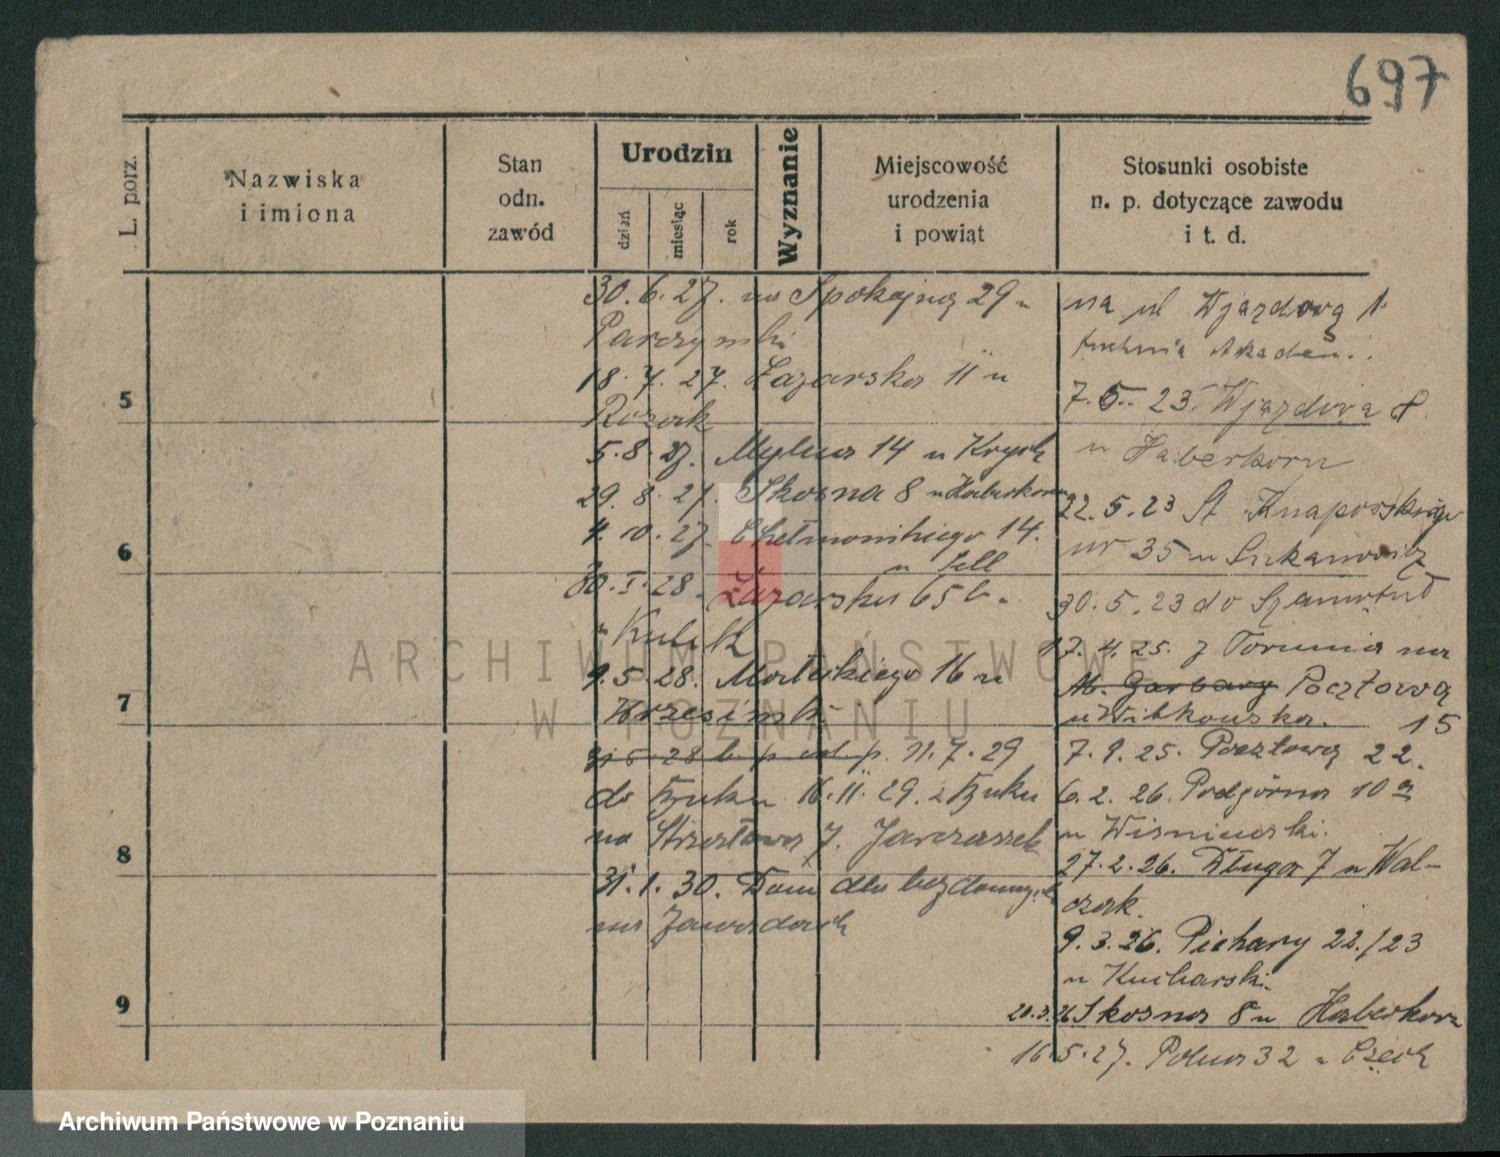 697
L. porz.
Nazwiska
i imiona
Stan
odn.
zawód
Urodzin
dzień
miesiąc
rok
Wyznanie
Miejscowość
urodzenia
i powiąt
Stosunki osobiste
n. p. dotyczące zawodu
i t. d.
5
6
7
8
9
30. 6. 27. na Spokojną 29 u
Parczyński
18. 7. 27. Łazarska 11 u
Rozak
5. 8. 27. Mylna 14 u Krych
29. 8. 27. Skośna 8 u Haberkorn
4. 10. 27. Chełmońskiego 14.
u Sell
30. I. 28. Łazarska 65 b.
u Kubek
9. 5. 28. Mateckiego 16 u
Krzesiński
31 5 28 11. 7. 29
do Buku 16. 11. 29. z Buku
na Strzałowa 7. Jarczaszek
31. 1. 30. Dom dla bezdomnych
na Zawadach
na ul Wjazdową
kuchnia Akadem.
7. 5. 23. Wjazdowa 8.
u Haberkorn
22. 5. 23 St Knapowskiego
nr 35 u
30. 5. 23 do Szamotuł
17. 4. 25. z Torunia na
M. Garbary Pocztową
u Witkowska. 15
7. 9. 25. Pocztową 22.
6. 2. 26. Podgórna 10 a
u Wiśniewski.
27. 2. 26. Długa 7 u Wal-
czak.
9. 3. 26. Piekary 22./23
u Kucharski.
20. 3. 26 Skośna 8 u Haberkorn
16. 5. 27. Polna 32 u Czech
ARCHIWUM PAŃSTWOWE
W POZNANIU
Archiwum Państwowe w Poznaniu